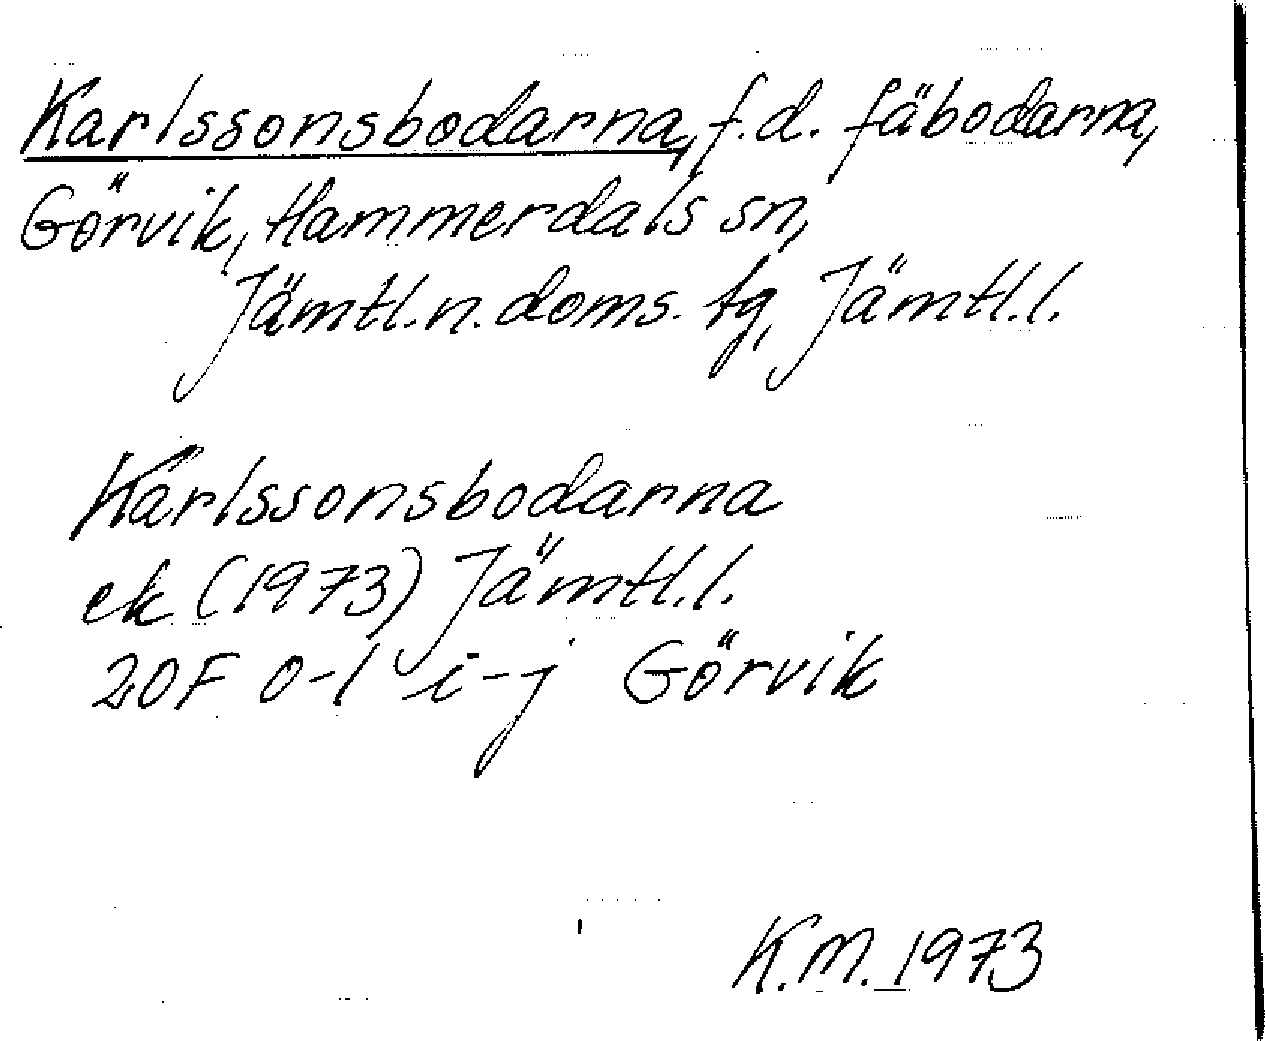 Karlssonsbodarna, f.d. fäbodarna,
Görvik, Hammerdals sn,
Jämtl.n.doms. tg, Jämtl.l.
Karlssonsbodarna
ek (1973) Jämtl.l.
20F 0-1 i-j Görvik
K.M. 1973